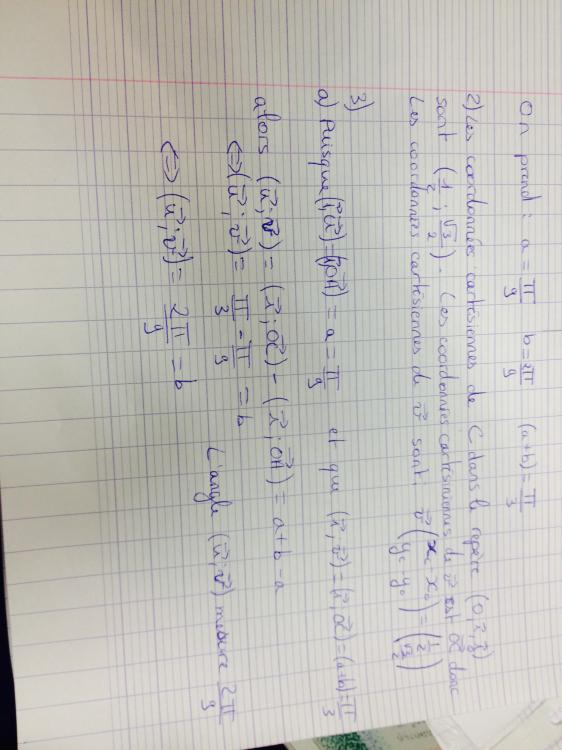 On prend : a = π/9 b = 2π/9 (a+b) = π/3
2) Les coordonnées cartésiennes de C dans le repère (O, i⃗, j⃗)
sont (1/2 ; √3/2). Les coordonnées cartésiennes de v⃗ est OC⃗ donc
Les coordonnées cartésiennes de v⃗ sont : v⃗ (xc - xo / yc - yo) = (1/2 / √3/2)
3)
a) Puisque (i⃗; u⃗) = (i⃗; OA⃗) = a = π/9 et que (i⃗; v⃗) = (i⃗; OC⃗) = (a+b) = π/3
alors (u⃗; v⃗) = (i⃗; OC⃗) - (i⃗; OA⃗) = a + b - a
⇔ (u⃗; v⃗) = π/3 - π/9 = b
⇔ (u⃗; v⃗) = 2π/9 = b L'angle (u⃗; v⃗) mesure 2π/9